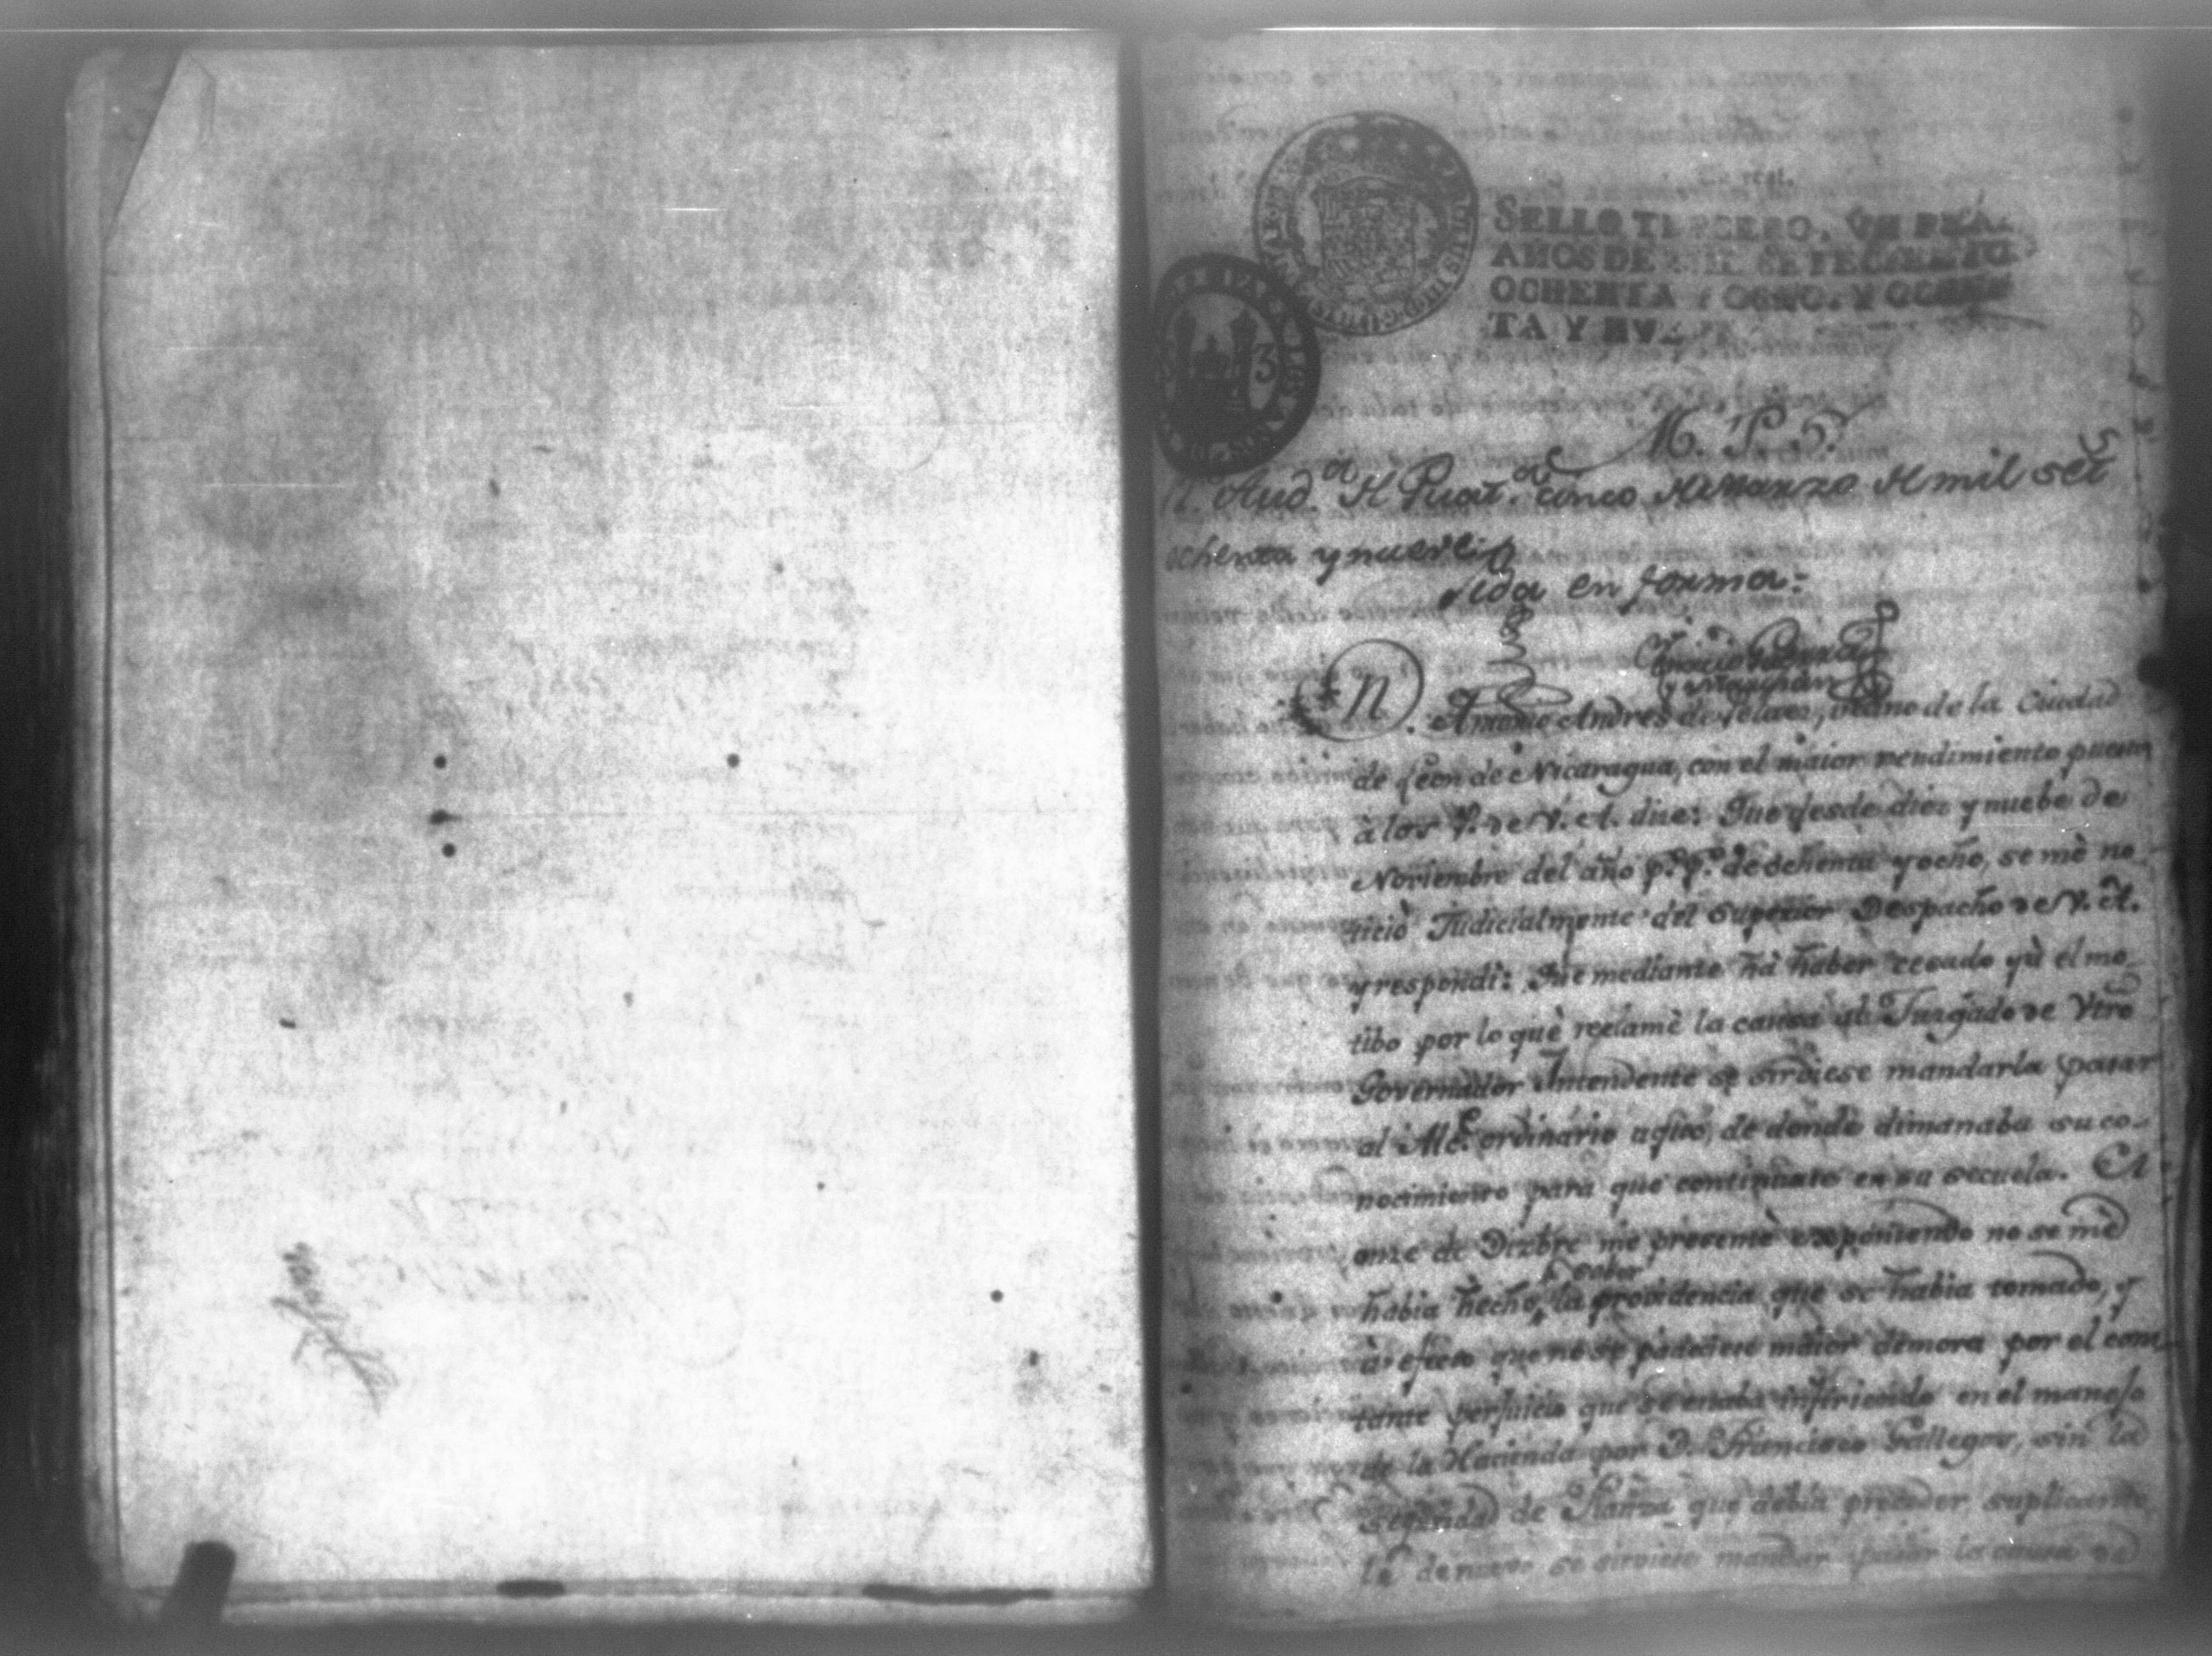 SELLO TERCERO, UN REAL
AÑOS DE MIL SETECIENTOS
OCHENTA Y OCHO, Y OCHEN
TA Y NUEVE
3
M. P. S.
R. Aud.a R Guat.a cinco R Marzo R mil set.s
ochenta y nueve
Vida en forma:
Ignacio Guerra
y Marchán
Antonio Andres de Velasco, vecino de la Ciudad
de Leon de Nicaragua, con el maior rendimiento puesto
à los P. de V. A. dice: Que desde diez y nuebe de
Noviembre del año p.° p.° de ochenta y ocho, se mè no-
ticiò Judicialmente del Superior Despacho de V. A.
y respondi: Que mediante hà haber cesado yà el mo-
tibo por lo què reclamè la causa al Juzgado de Vtro
Governador Intendente se sirviese mandarla pasar
al Alc.e ordinario aquo, de donde dimanaba su co-
nocimiento para que continuase en su secuela. El
onze de Dizbre me presentè exponiendo no se mè
saber
habia hecho, la providencia que se habia tomado, y
à efecto que no se padeciese maior demora por el cons-
tante perjuicio que se estaba infiriendo en el manejo
de la Hacienda por D. Francisco Gallegos, sin la
seguridad de Fianza que debia preceder, suplicando
le de nuevo se sirviese mandar pasar la causa